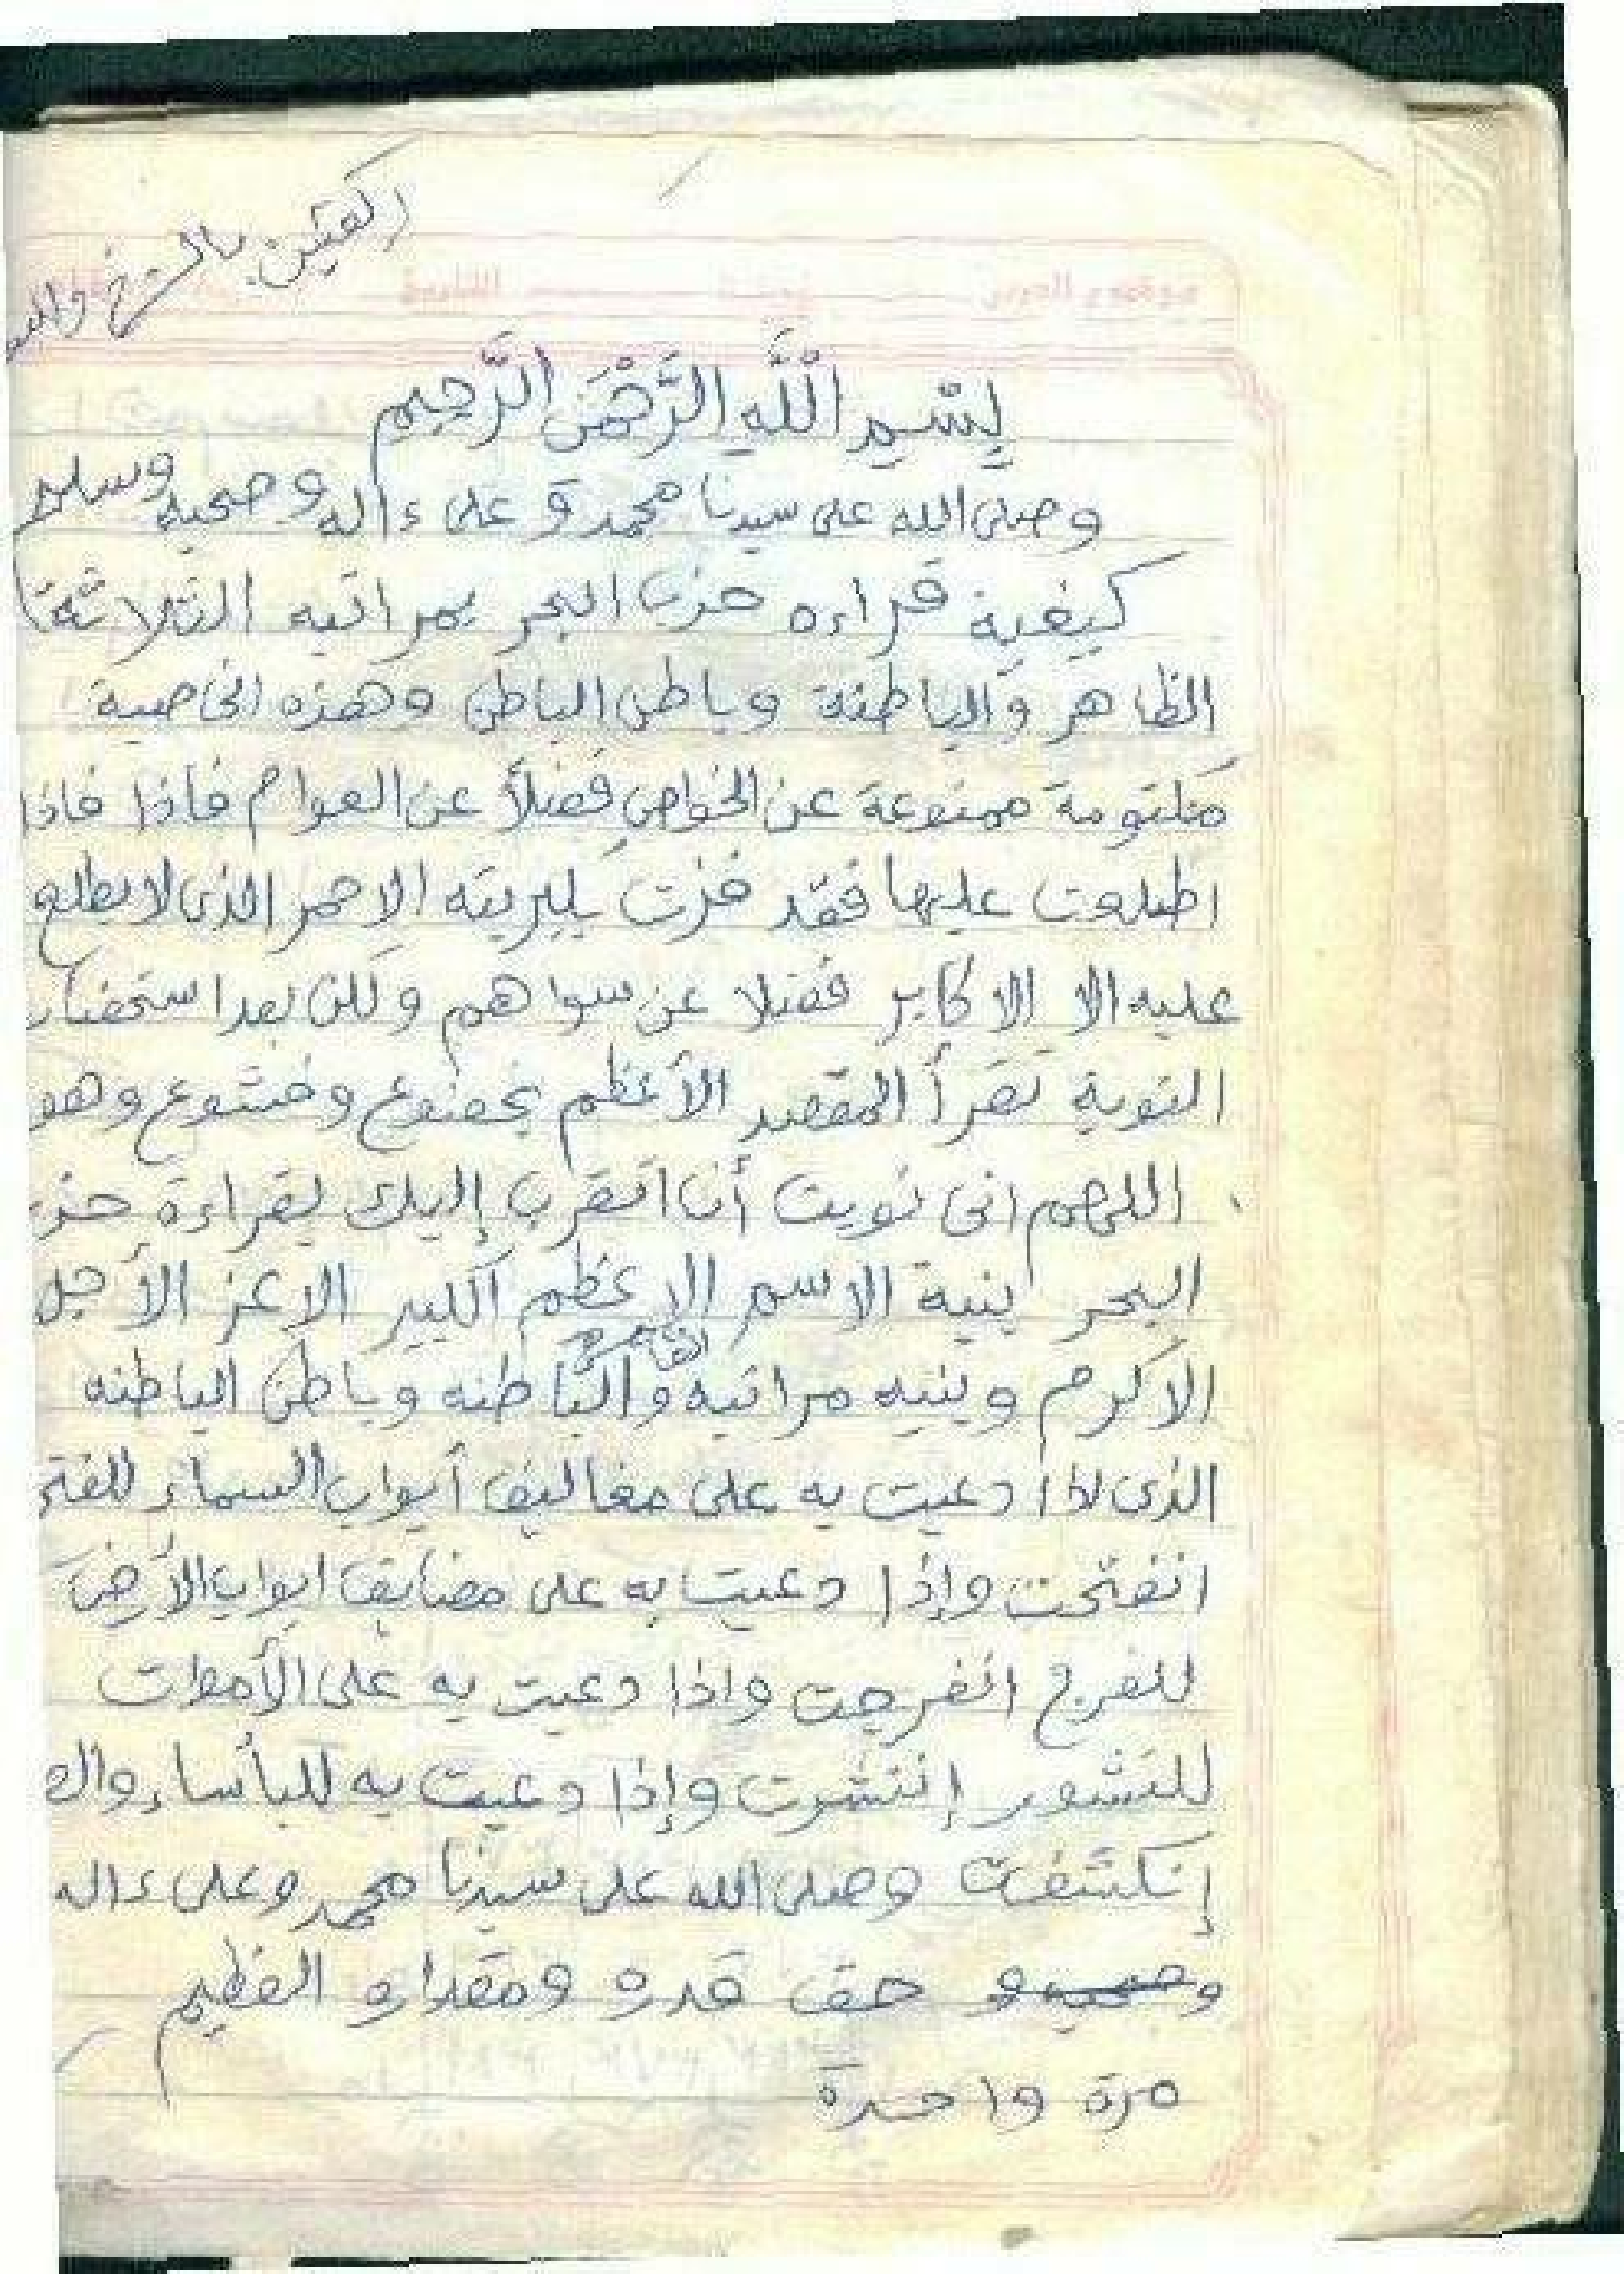 ركعتين بالشرح
بِسْمِ اللَّهِ الرَّحْمَنِ الرَّحِيم
وصلى الله على سيدنا محمد وعلى ءاله وصحبه وسلم
كيفية قراءه حزب البحر بمراتبه الثلاثة
الظاهر والباطنة وباطن الباطن وهذه الخاصية
مكتومة ممنوعة عن الخواص فضلاً عن العوام فاذا فاذا
اطلعت عليها فقد فزت بكبريته الاحمر الذى لا يطلع
عليه الا الاكابر فضلا عن سواهم ولكن بعد استحضار
التوبة تقرأ المقصد الأعظم بخضوع وخشوع وهو
اللهم انى نويت أن اتقرب إليك بقراءة حزب
البحر بنية الاسم الاعظم الكبير الاعز الأجل
الاكرم وبنيه مراتبه الظاهره والباطنه وباطن الباطنه
الذى اذا دعيت به على مغاليق أبواب السماء للفتح
انفتحت وإذا دعيت به على مضايق ابواب الأرض
للفرج انفرجت واذا دعيت به على الأموات
للنشور إنتشرت وإذا دعيت به للبأساء وال
إنكشفت وصلى الله على سيدنا محمد وعلى ءاله
وصحبه حق قدره ومقداره العظيم
مرة واحدة